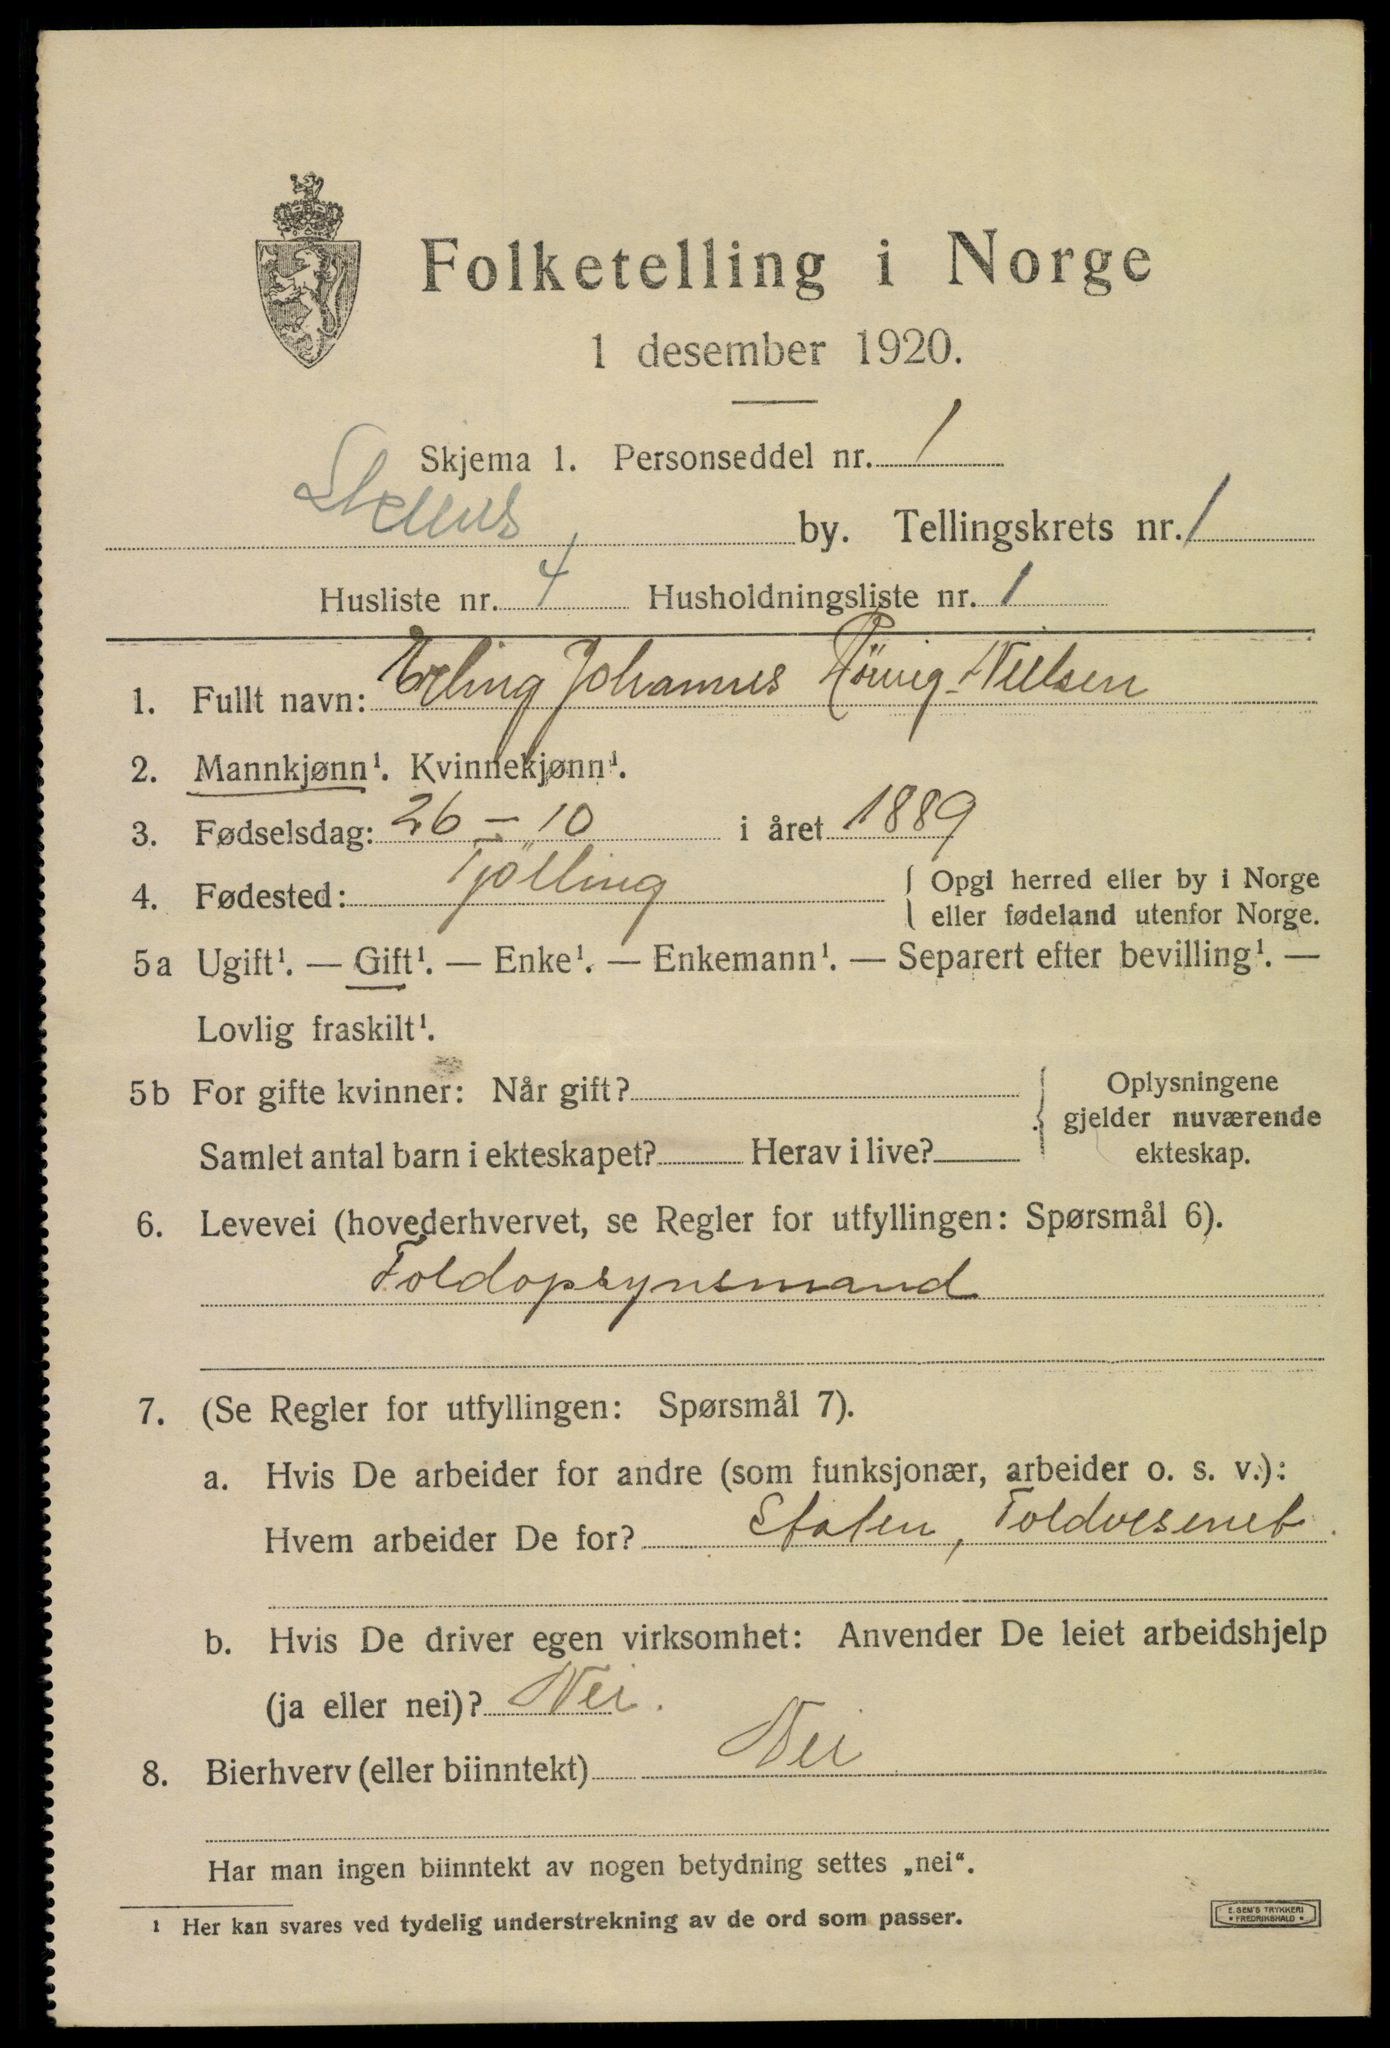 Folketelling i Norge
1 desember 1920.
Skjema 1. Personseddel nr. 1
by. Tellingskrets nr. 1
Husliste nr. 4 Husholdningsliste nr. 1
1. Fullt navn: Erling Johannes Rövig-Nielsen
2. Mannkjønn¹. Kvinnekjønn¹.
3. Fødselsdag: 26 – 10 i året 1889
4. Fødested: Tjölling { Opgi herred eller by i Norge
eller fødeland utenfor Norge.
5a Ugift¹. — Gift¹. — Enke¹. — Enkemann¹. — Separert efter bevilling¹. —
Lovlig fraskilt¹.
5b For gifte kvinner: Når gift? Oplysningene
gjelder nuværende
Samlet antal barn i ekteskapet? Herav i live? ekteskap.
6. Levevei (hovederhvervet, se Regler for utfyllingen: Spørsmål 6).
Toldopsynsmand
7. (Se Regler for utfyllingen: Spørsmål 7).
a. Hvis De arbeider for andre (som funksjonær, arbeider o. s. v.):
Hvem arbeider De for? Staten, Toldvesenet.
b. Hvis De driver egen virksomhet: Anvender De leiet arbeidshjelp
(ja eller nei)? Nei.
8. Bierhverv (eller biinntekt) Nei
Har man ingen biinntekt av nogen betydning settes „nei“.
¹ Her kan svares ved tydelig understrekning av de ord som passer.
E. SEM'S TRYKKERI
* FREDRIKSHALD *